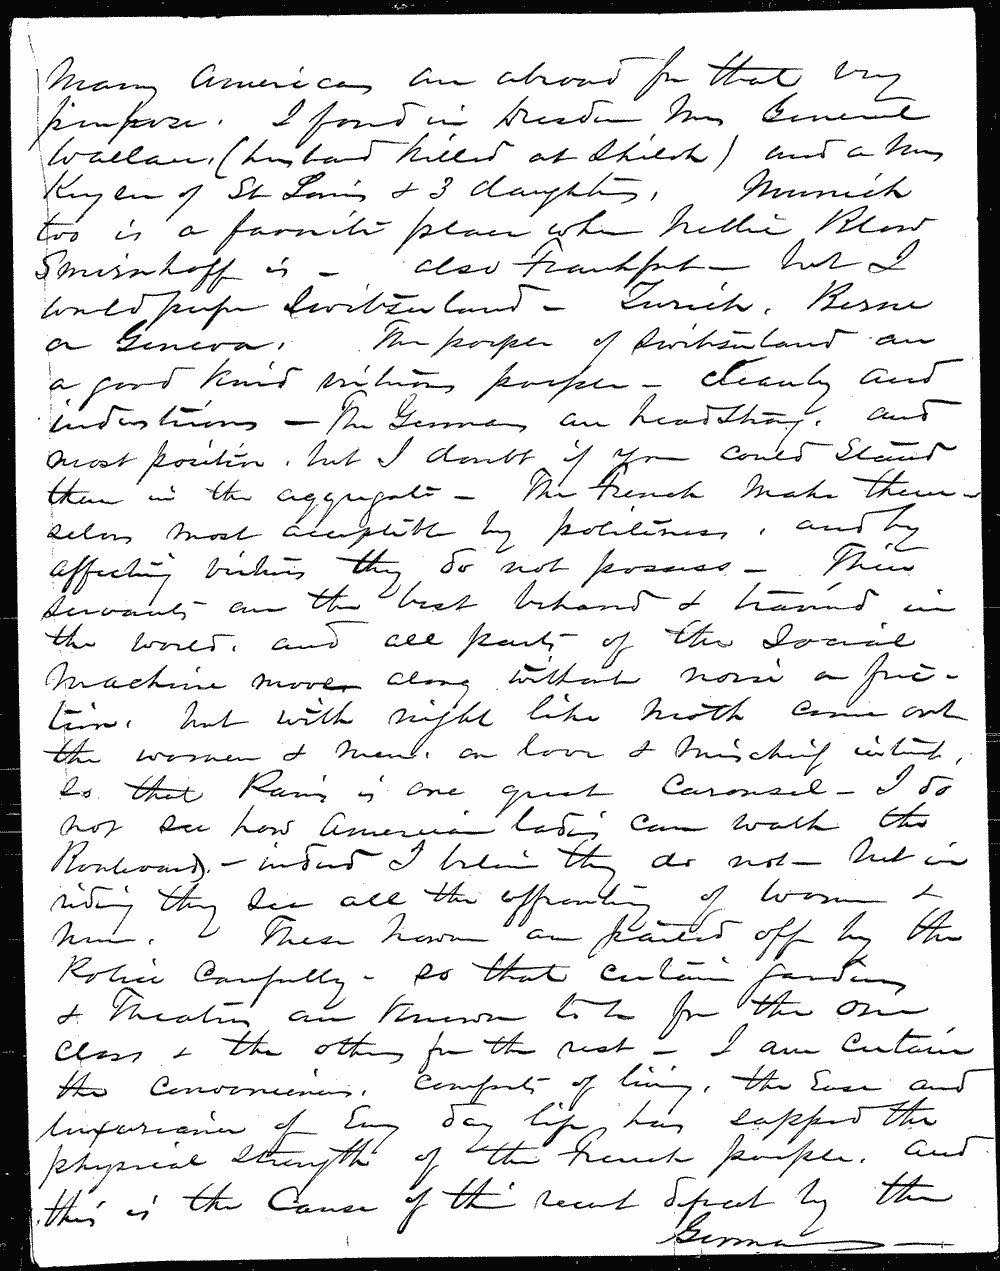 Many Americans are abroad for that very
purpose. I found in Dresden Mrs General
Wallace, (husband killed at Shiloh) and a Mrs
Keyser of St Louis & 3 daughters. Munich
too is a favorite place where Nellie Blow
Smirnhoff is - also Frankfort - but I
would prefer Switzerland - Zurich, Berne
or Geneva. The people of Switzerland are
a good kind virtuous people - cleanly and
industrious - The Germans are headstrong, and
most positive, but I doubt if you could stand
them in the aggregate - The French make them-
selves most acceptible by politeness, and by
affecting virtues they do not possess - Their
servants are the best behaved & trained in
the world, and all parts of the Social
Machine moves along without noise or fric-
tion, but with night like moth come out
the women & men, on love & mischief intent,
so that Paris is one great Carousel - I do
not see how American ladies can walk the
Boulevards - indeed I believe they do not - but in
riding they see all the effrontery of women &
men. These however are parted off by the
Police carefully - so that certain gardens
& Theatres are known to be for the one
class & the others for the rest - I am certain
the conveniences, comforts of living, the Ease and
luxuriance of Every day life, has sapped the
physical strength of the French people, and
this is the Cause of their recent defeat by the
Germans -